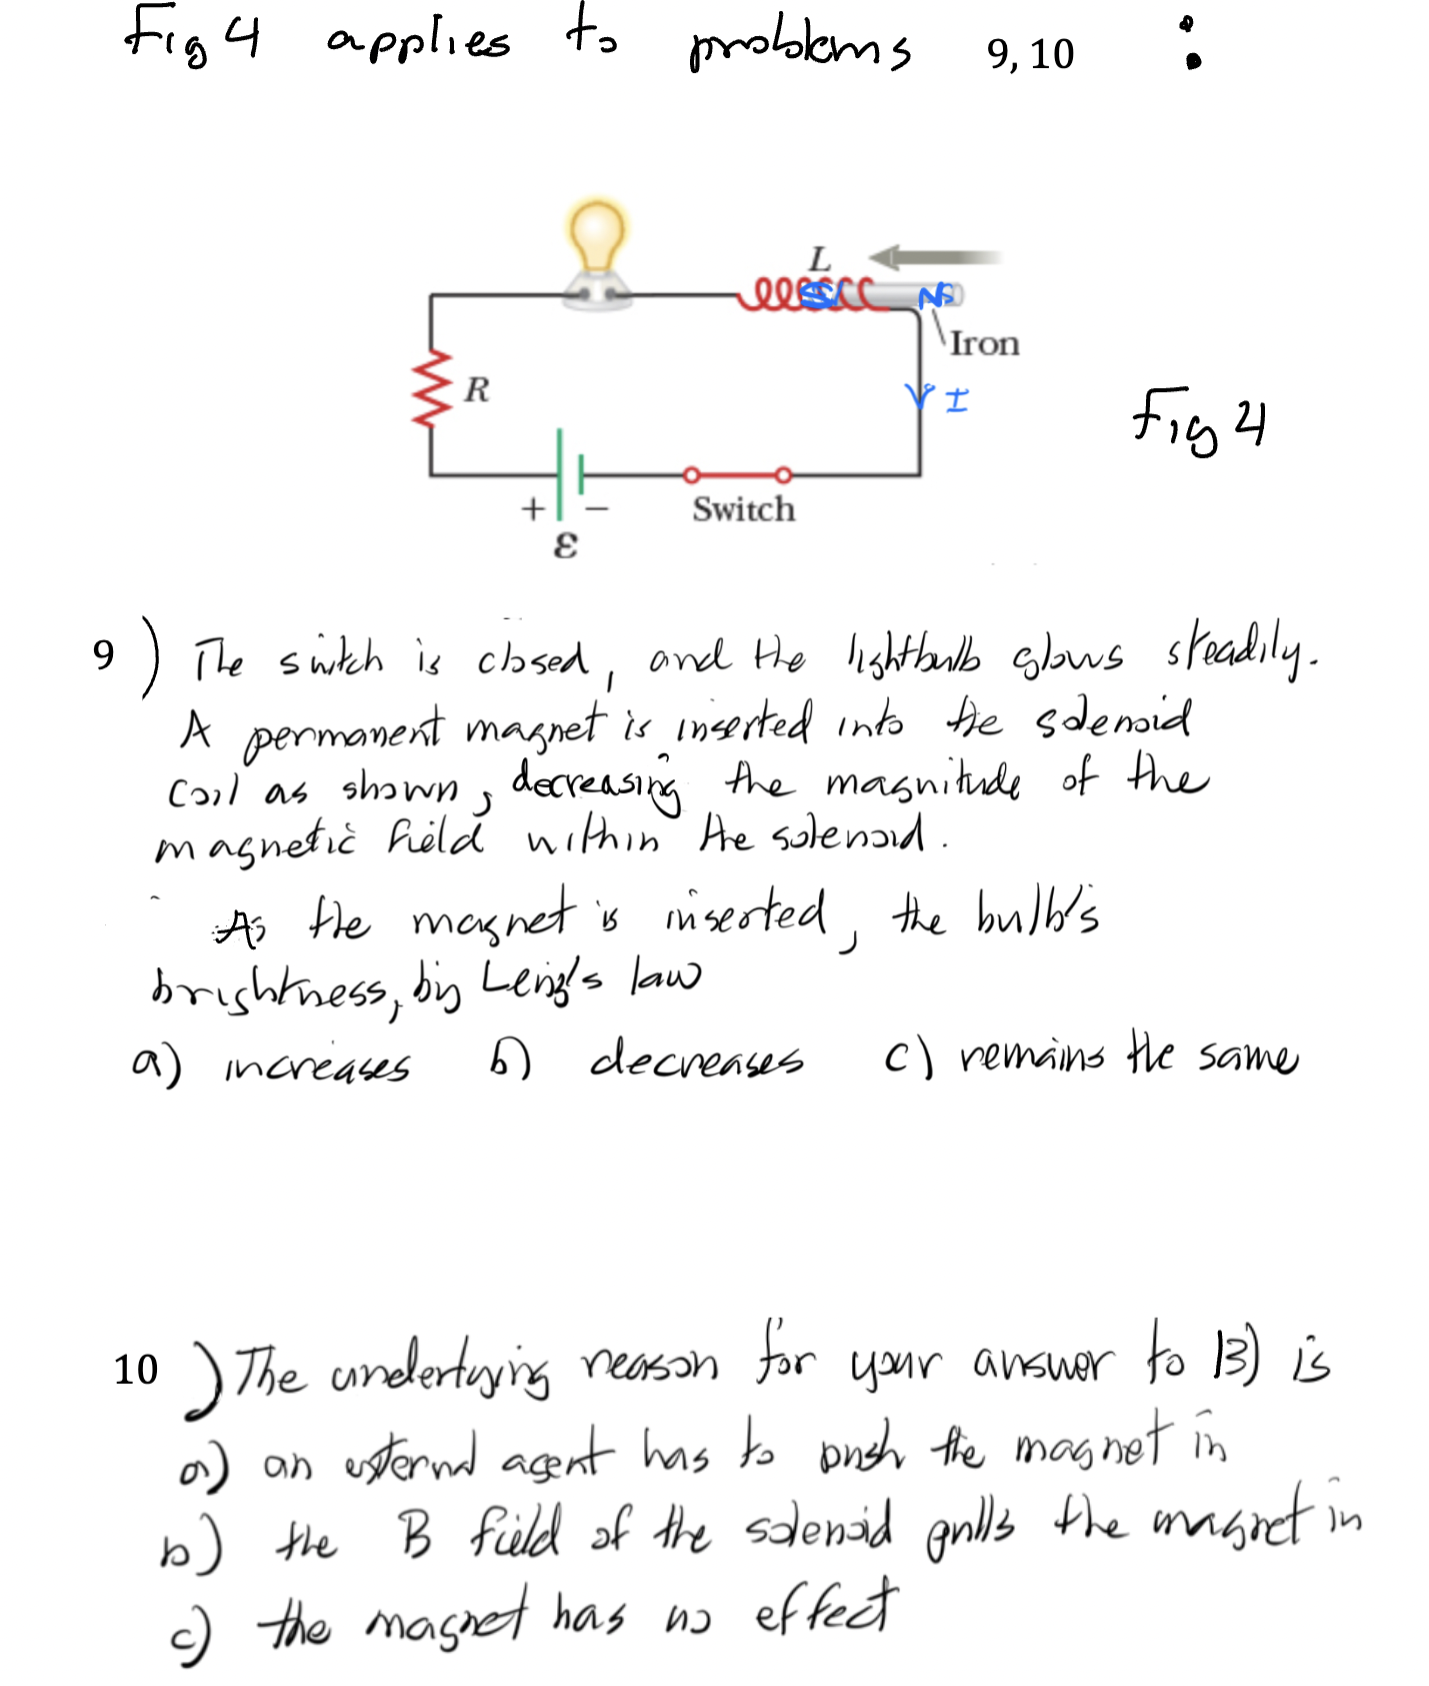 Fig 4 applies to problems 9, 10 :
L
S
N
Iron
R
I
Fig 4
+
−
Switch
ε
9) The switch is closed, and the lightbulb glows steadily.
A permanent magnet is inserted into the solenoid
coil as shown, decreasing the magnitude of the
magnetic field within the solenoid.
As the magnet is inserted, the bulb's
brightness, by Lenz's law
a) increases b) decreases c) remains the same
10) The underlying reason for your answer to 13) is
a) an external agent has to push the magnet in
b) the B field of the solenoid pulls the magnet in
c) the magnet has no effect